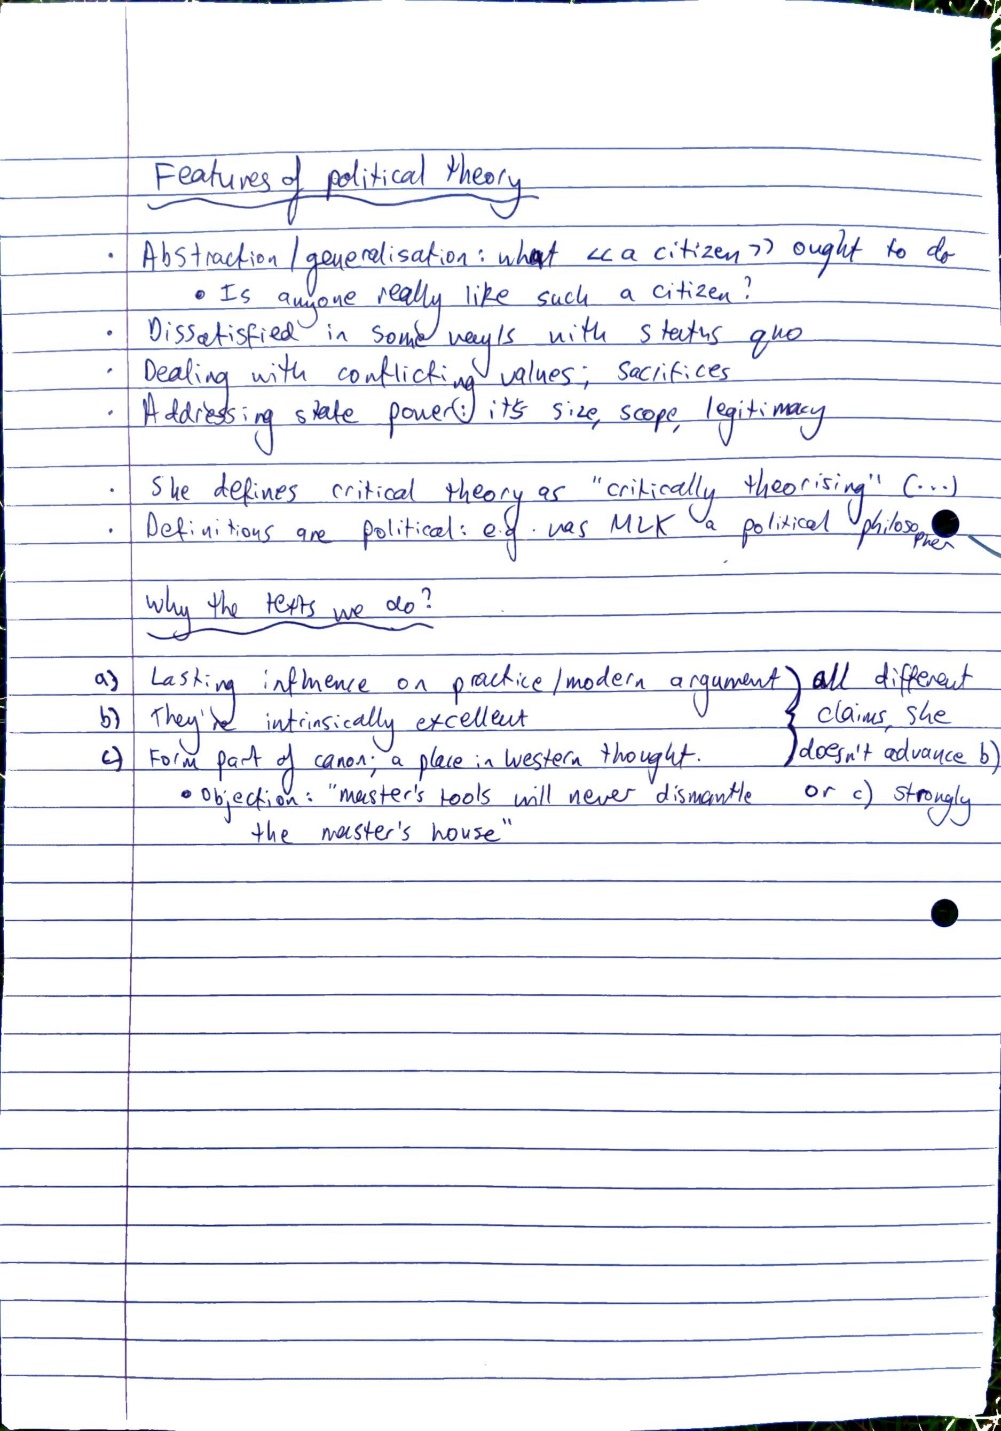 Features of political theory
· Abstraction/generalisation: what <<a citizen>> ought to do
• Is anyone really like such a citizen?
· Dissatisfied in some way/s with status quo
· Dealing with conflicting values; sacrifices
· Addressing state power(:) its size, scope, legitimacy
· She defines critical theory as "critically theorising" (...)
· Definitions are political: e.g. was MLK a political philosopher
Why the texts we do?
a) Lasting influence on practice/modern argument } all different
b) They're intrinsically excellent claims, she
c) Form part of canon; a place in Western thought. doesn't advance b)
• Objection: "master's tools will never dismantle or c) strongly
the master's house"